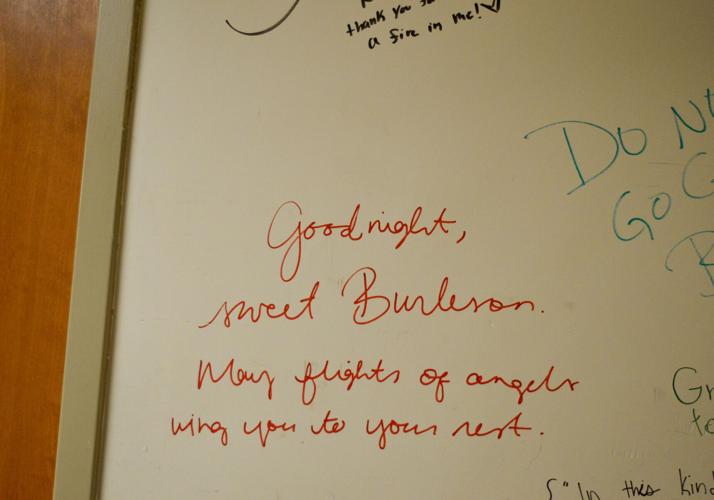 thank you
a fire in me!
DO
GO
Goodnight,
sweet Burleson.
May flights of angels
wing you to your rest.
"In this kind